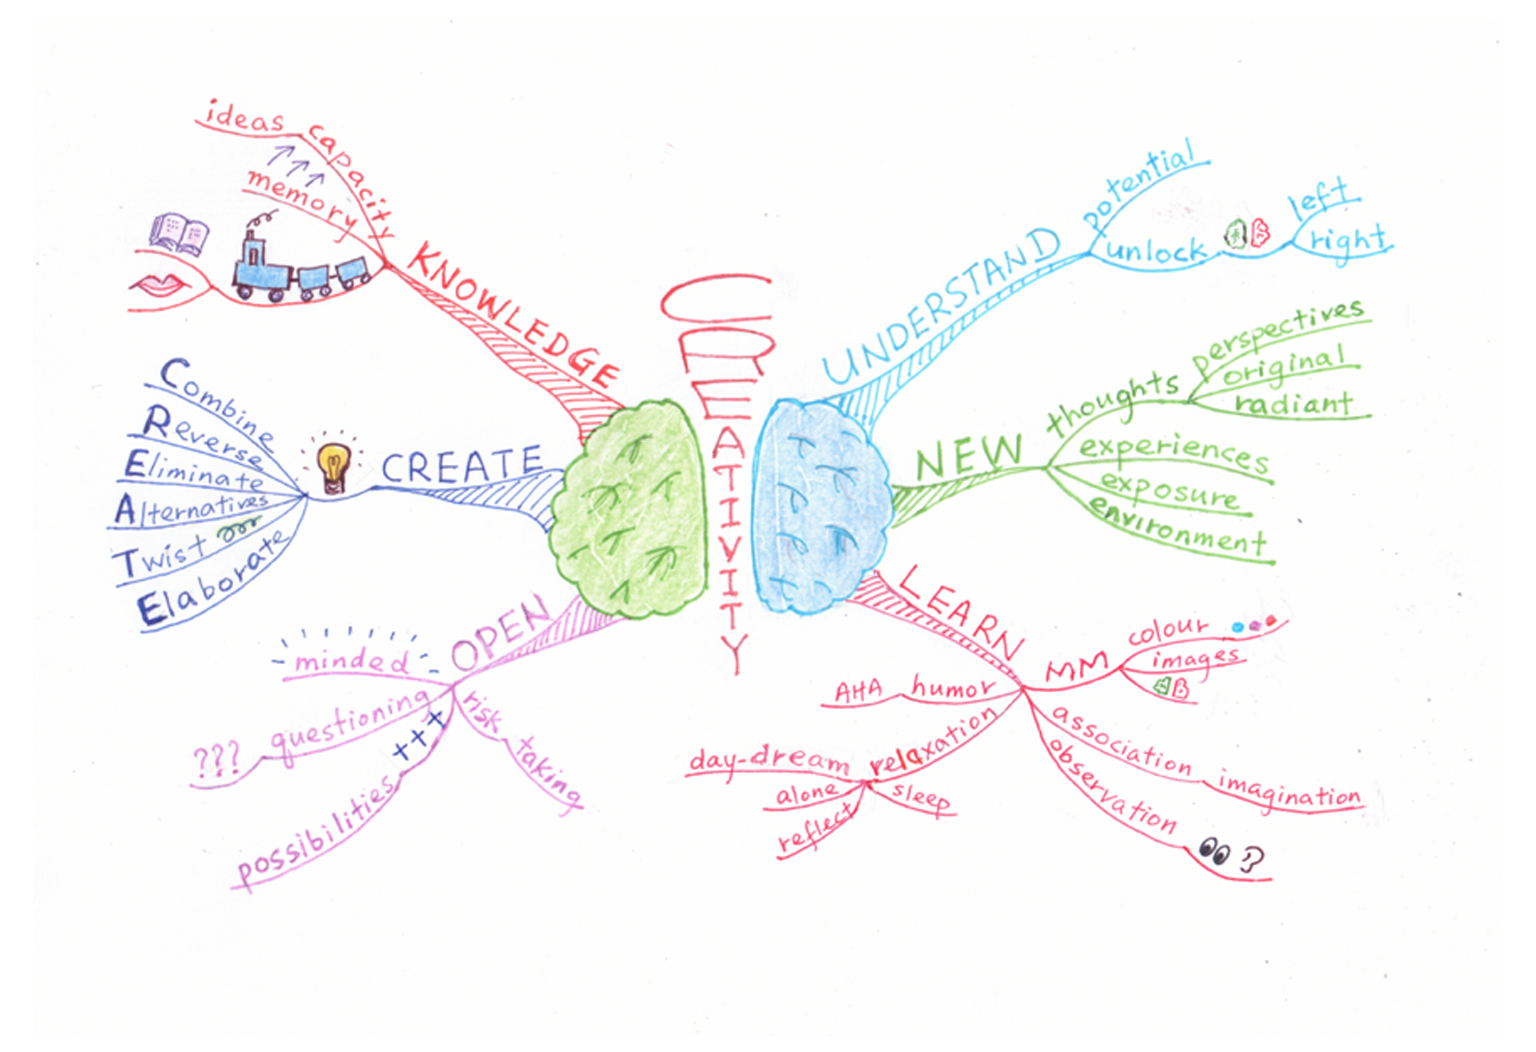 CREATIVITY
KNOWLEDGE
capacity
ideas
memory
CREATE
Combine
Reverse
Eliminate
Alternatives
Twist
Elaborate
OPEN
minded
questioning
???
+++
possibilities
risk
taking
UNDERSTAND
potential
unlock
left
right
NEW
thoughts
perspectives
original
radiant
experiences
exposure
environment
LEARN
MM
colour
images
association
imagination
observation
?
humor
AHA
relaxation
day-dream
alone
reflect
sleep